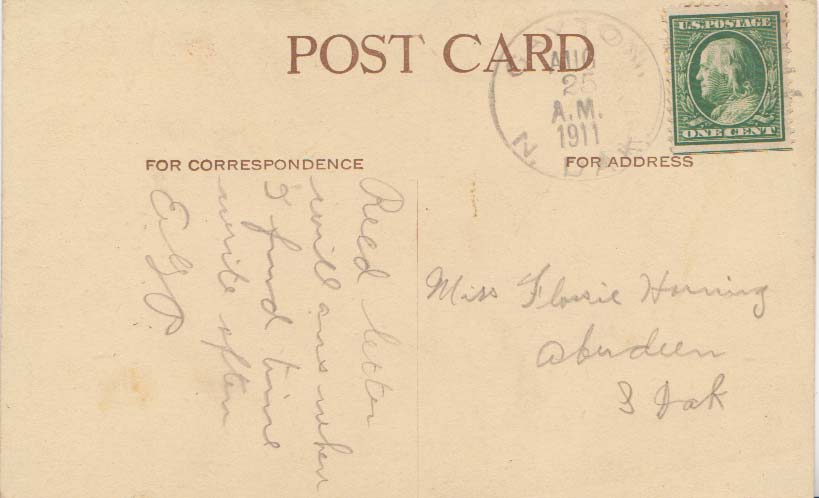 POST CARD
AUG
25
A.M.
1911
N. DAK.
U.S. POSTAGE
ONE CENT
FOR CORRESPONDENCE
FOR ADDRESS
Recd letter
will ans when
I find time
write often
Miss Flossie Horning
Aberdeen
S Dak